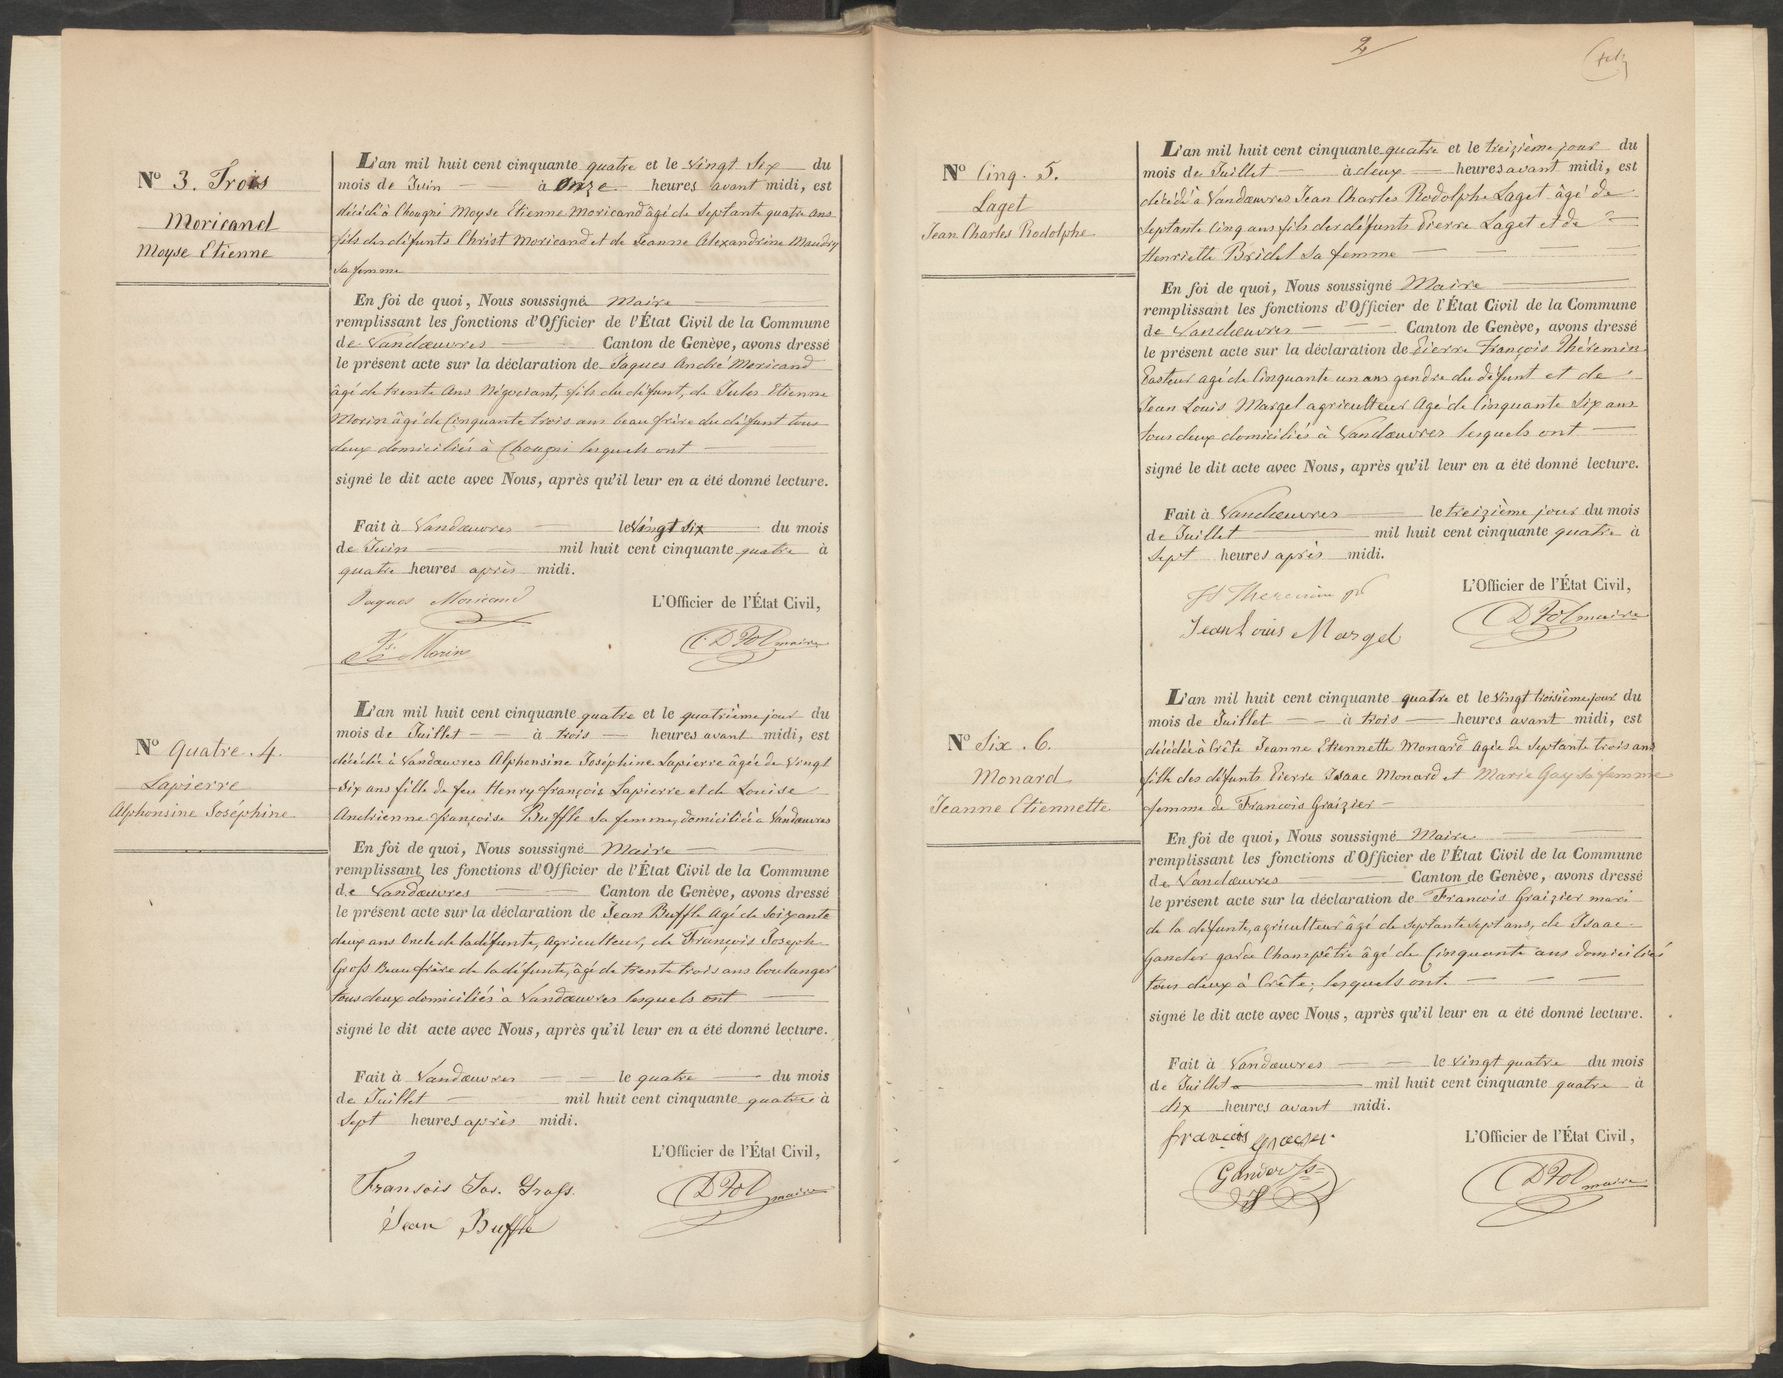 Nº 3. Trois
Moricand
Moyse Etienne
L'an mil huit cent cinquante quatre et le vingt six du
mois de Juin à onze heures avant midi, est
décédé à Chougni Moyse Etienne Moricand âgé de septante quatre ans
fils des défunts Christ Moricand et de Jeanne Alexandrine Maudry
sa femme
En foi de quoi, Nous soussigné Maire
remplissant les fonctions d'Officier de l'État Civil de la Commune
de Vandœuvres Canton de Genève, avons dressé
le présent acte sur la déclaration de Jaques André Moricand
âgé de trente ans Négociant, fils du défunt, de Jules Etienne
Morin âgé de Cinquante trois ans beau frère du défunt tous
deux domiciliés à Chougni lesquels ont
signé le dit acte avec Nous, après qu'il leur en a été donné lecture.
Fait à Vandœuvres le vingt six du mois
de Juin mil huit cent cinquante quatre à
quatre heures après midi.
Jaques Moricand
L'Officier de l'État Civil,
Morin
D Fol maire
Nº Quatre. 4.
Lapierre
Alphonsine Joséphine
L'an mil huit cent cinquante quatre et le quatrième jour du
mois de Juillet à trois heures avant midi, est
décédée à Vandœuvres Alphonsine Joséphine Lapierre âgée de vingt
six ans fille de feu Henry françois Lapierre et de Louise
Andrienne françoise Buffle sa femme, domiciliée à Vandœuvres
En foi de quoi, Nous soussigné Maire
remplissant les fonctions d'Officier de l'État Civil de la Commune
de Vandœuvres Canton de Genève, avons dressé
le présent acte sur la déclaration de Jean Buffle Agé de soixante
deux ans Oncle de la défunte, Agriculteur, de François Joseph
Groß Beau frère de la défunte, âgé de trente trois ans boulanger
tous deux domiciliés à Vandœuvres lesquels ont
signé le dit acte avec Nous, après qu'il leur en a été donné lecture.
Fait à Vandœuvres le quatre du mois
de Juillet mil huit cent cinquante quatre à
sept heures après midi.
L'Officier de l'État Civil,
Fransois Jos. Groß.
D Fol maire
Jean Buffle
2
Nº Cinq. 5.
Laget
Jean Charles Rodolphe
L'an mil huit cent cinquante quatre et le treizième jour du
mois de Juillet à deux heures avant midi, est
décédé à Vandœuvres Jean Charles Rodolphe Laget âgé de
septante cinq ans fils des défunts Pierre Laget et de
Henriette Bridel sa femme
En foi de quoi, Nous soussigné Maire
remplissant les fonctions d'Officier de l'État Civil de la Commune
de Vandœuvres Canton de Genève, avons dressé
le présent acte sur la déclaration de Pierre François Théremin
Pasteur agé de Cinquante un ans gendre du défunt et de
Jean Louis Margel agriculteur Agé de Cinquante six ans
tous deux domiciliés à Vandœuvres lesquels ont
signé le dit acte avec Nous, après qu'il leur en a été donné lecture.
Fait à Vandœuvres le treizième jour du mois
de Juillet mil huit cent cinquante quatre à
sept heures après midi.
L'Officier de l'État Civil,
Theremin
D Fol maire
Jean Louis Margel
Nº Six. 6.
Monard
Jeanne Etiennette
L'an mil huit cent cinquante quatre et le vingt troisième jour du
mois de Juillet à trois heures avant midi, est
décédée à Crête Jeanne Etiennette Monard Agée de septante trois ans
fille des défunts Pierre Isaac Monard et Marie Gay sa femme
femme de François Graizier
En foi de quoi, Nous soussigné Maire
remplissant les fonctions d'Officier de l'État Civil de la Commune
de Vandœuvres Canton de Genève, avons dressé
le présent acte sur la déclaration de François Graizier mari
de la défunte, agriculteur âgé de septante sept ans, de Isaac
Gander garde Champêtre âgé de Cinquante ans domiciliés
tous deux à Crête; lesquels ont
signé le dit acte avec Nous, après qu'il leur en a été donné lecture.
Fait à Vandœuvres le vingt quatre du mois
de Juillet mil huit cent cinquante quatre à
dix heures avant midi.
françois
L'Officier de l'État Civil,
Gander
D Fol maire